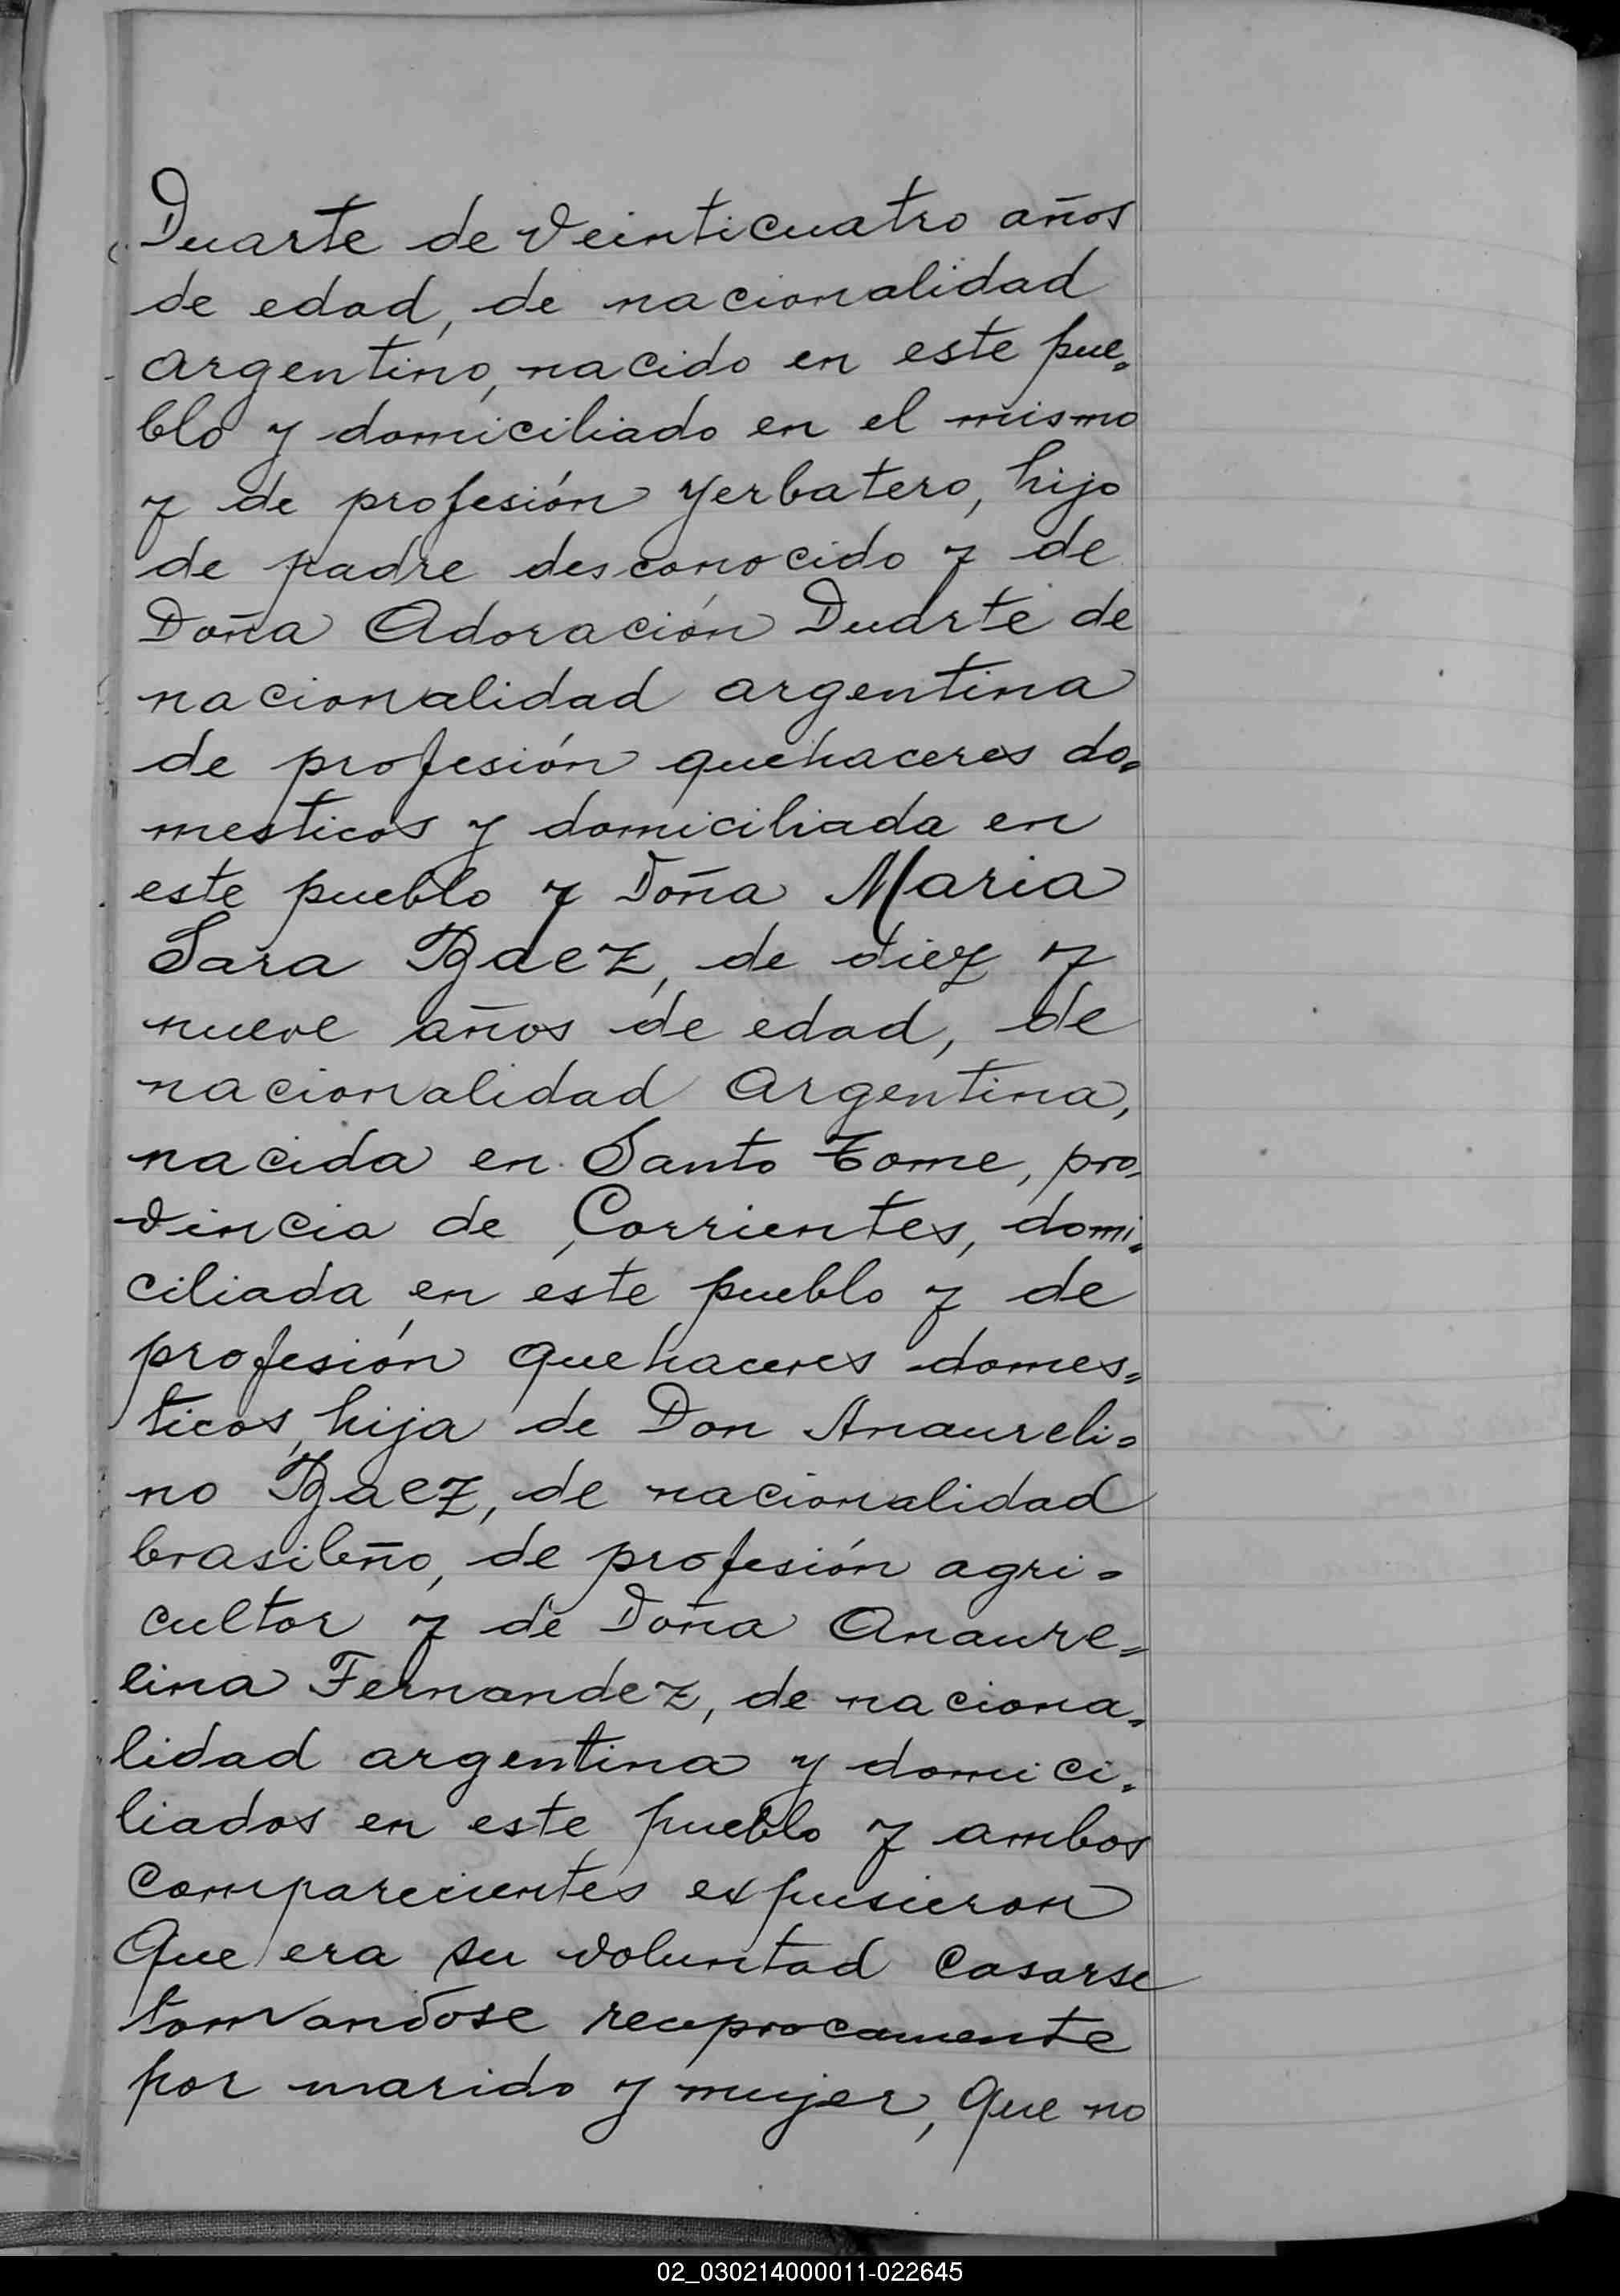 Duarte de veinticuatro años
de edad, de nacionalidad
argentino, nacido en este pue=
blo y domiciliado en el mismo
y de profesión yerbatero, hijo
de padre desconocido y de
Doña Adoración Duarte de
nacionalidad argentina
de profesión quehaceres do=
mesticos y domiciliada en
este pueblo y Doña Maria
Sara Baez, de diez y
nueve años de edad, de
nacionalidad Argentina,
nacida en Santo Tome, pro=
vincia de Corrientes, domi=
ciliada en este pueblo y de
profesión quehaceres domes=
ticos, hija de Don Anaureli=
no Baez, de nacionalidad
brasileño, de profesión agri=
cultor y de Doña Anaure=
lina Fernandez, de naciona=
lidad argentina y domici=
liados en este pueblo y ambos
comparecientes expusieron
Que era su voluntad casarse
tomandose reciprocamente
por marido y mujer, Que no
02_030214000011-022645